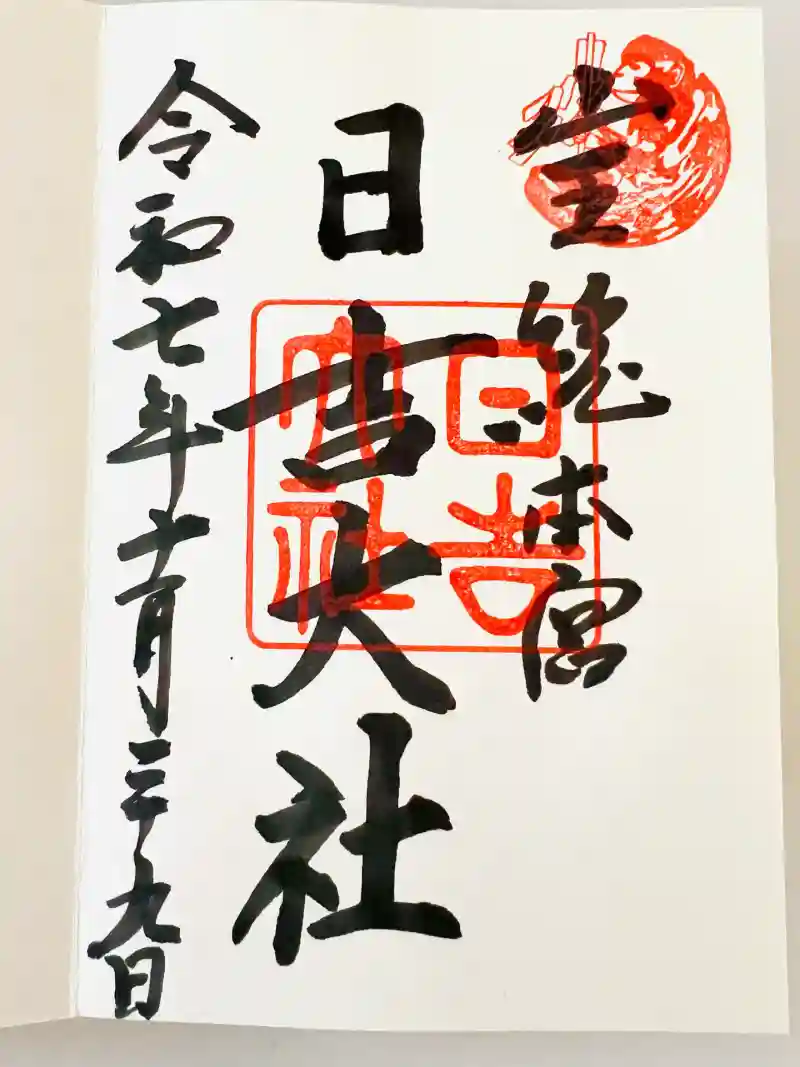 山王
総本宮
日吉大社
日吉大社
令和七年十一月二十九日